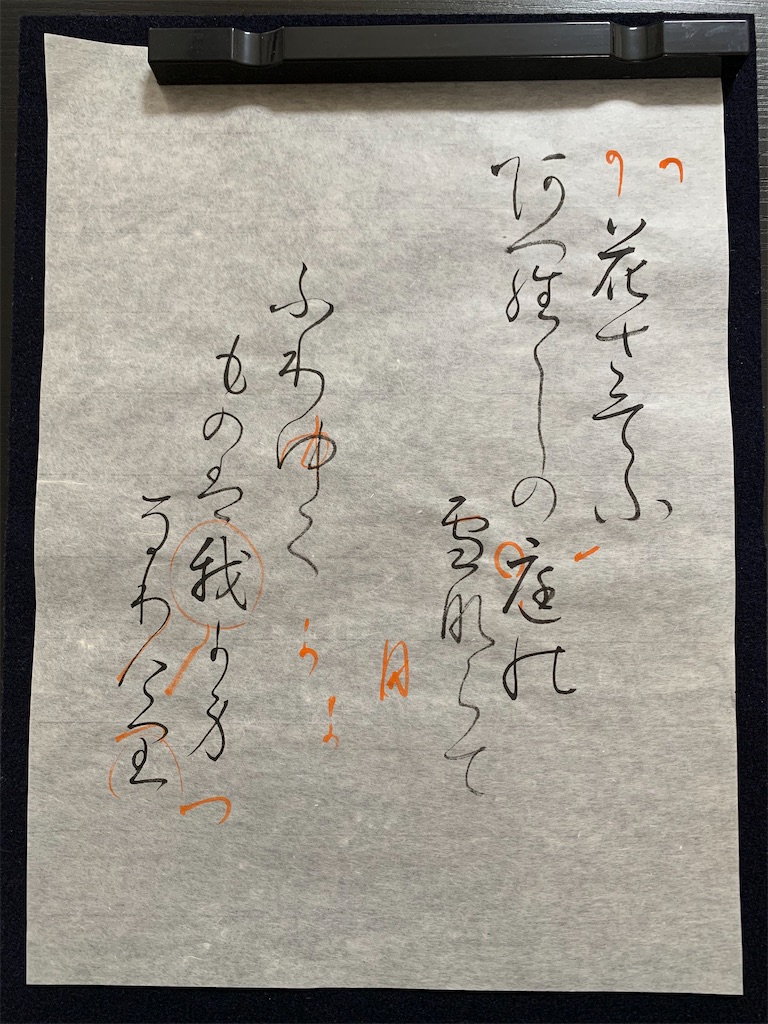 花さそふ
あらしの庭の
雪ならて
ふりゆく
ものは我か身
なりけり